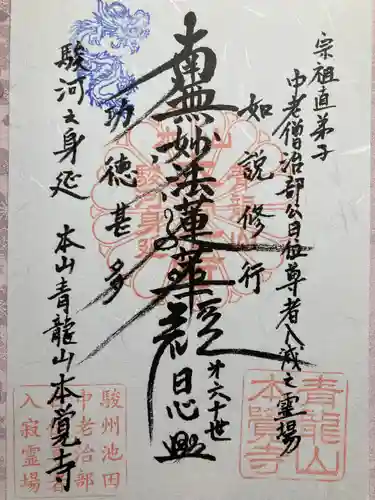 宗祖直弟子
中老僧治部公日位尊者入滅之霊場
如説修行
南無妙法蓮華経
第六十世
日心
功徳甚多
駿河之身延
本山青龍山本覺寺
青龍山
本覺寺
駿州池田
中老治部
入寂霊場